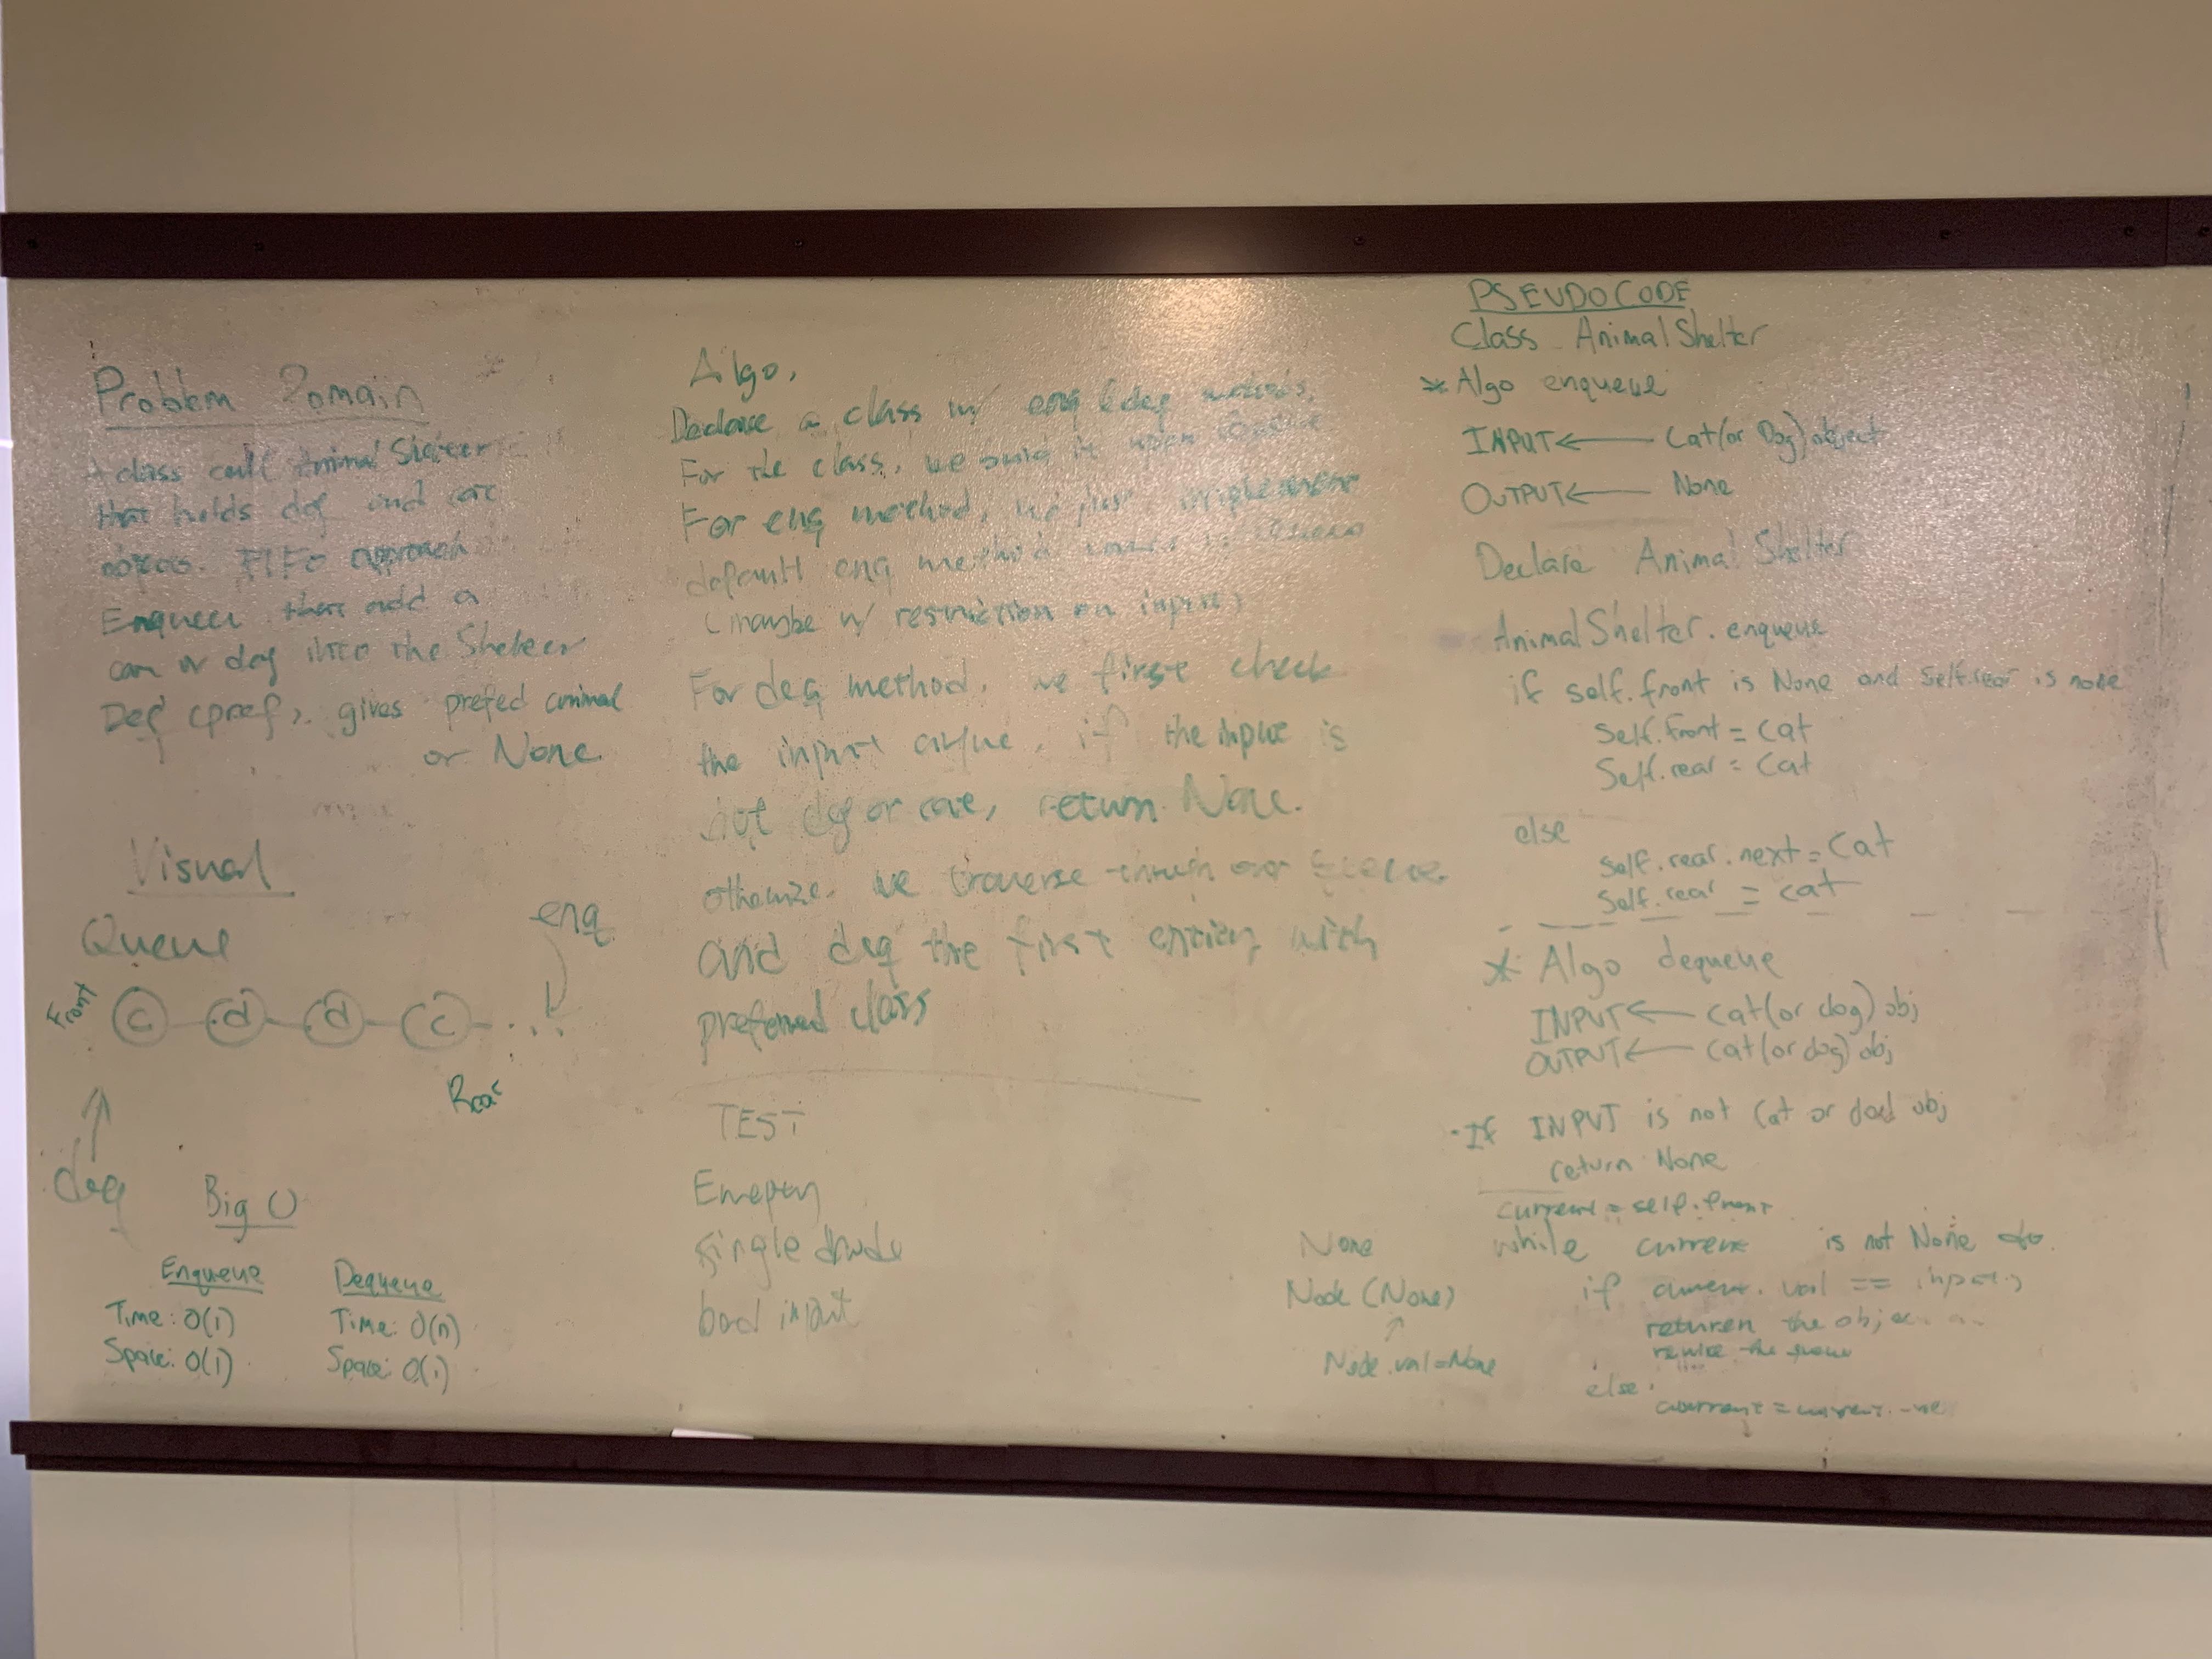 Problem Domain
A class call Animal Shelter
that holds dog and cat
FIFO approach
Enqueu that add a
can or dog into the Shelter
Deq (pref), gives prefed animal
or None
Visual
Queue
enq
Front
c d d c ...
Rear
deq
Big O
Enqueue Dequeue
Time: O(1) Time: O(n)
Space: O(1) Space: O(1)
Algo.
Declare a class w/ enq & deq methods.
For the class, we build it upon
For enq method, we just implement
default enq method
(maybe w/ restriction on input)
For deq method, we first check
the input if the input is
not dog or cat, return None.
we traverse through our Queue
and deq the first entity with
preferred class
TEST
single
bad input
None
Node (None)
Node.val=None
PSEUDOCODE
Class AnimalShelter
* Algo enqueue
INPUT ← Cat(or Dog) object
OUTPUT ← None
Declare Animal Shelter
AnimalShelter.enqueue
if self.front is None and self.rear is none
Self.front = Cat
Self.rear = Cat
else
Self.rear.next = Cat
Self.rear = cat
* Algo dequeue
INPUT ← cat(or dog) obj
OUTPUT ← cat(or dog) obj
If INPUT is not Cat or obj
return None
current = self.front
while current is not None do
if current.val == input
the
the
else
current = current.